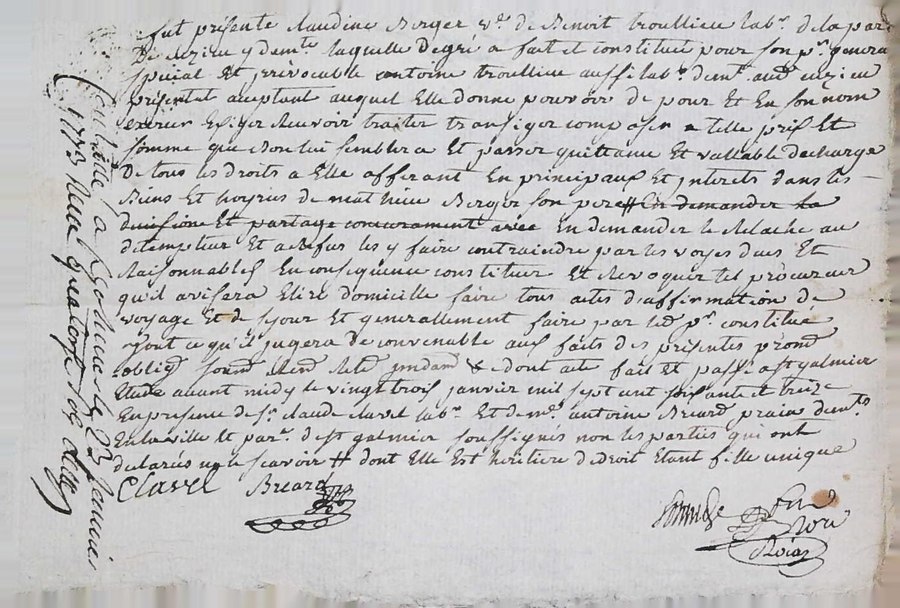 fut présente Claudine Berger vve. de Benoit troullieu labr. dela par
De cezieu y demte. laquelle degré a fait et constitué pour son pr. genera
special Et jrrévocable antoine troullieu aussi labr. demt. aud. cezieu
présent et aceptant auquel Elle donne pouvoir de pour Et En son nom
Exiger Recevoir traiter transiger composer a telle prix Et
somme que bon lui semblera Et passer quittance Et vallable decharge
De tous les droits a Elle afferant En principaux Et jnterets dans les
Biens Et hoyries de mathieu Berger son pere # En demander la
division Et partage concurament avec En demander le Relache au
détempteur Et a Refus les y faire contraindre par les voyes dues Et
Raisonnables En consequence constituer Et Revoquer tel procureur
qu'il avisera Elire domicille faire tous actes d'affirmation de
voyage Et de sejour Et generallement faire par led. pr. constitué
Tout ce qu'il jugera de convenable aux faits des présentes prom.
oblig. soum. Ren. &. dont acte fait et passé a st galmier
Etude avant midy le vingt trois janvier mil sept cent soixante et treize
En présence de sr. claude clavel labr. Et de me. antoine Breard demts.
En la ville Et par. de st galmier soussignés non les parties qui ont
declarés ne le scavoir # dont Elle Est héritiere de droit Etant fille unique
Clavel Breard
a St galmier le 23 janvier
1773 Reçu quatorze s